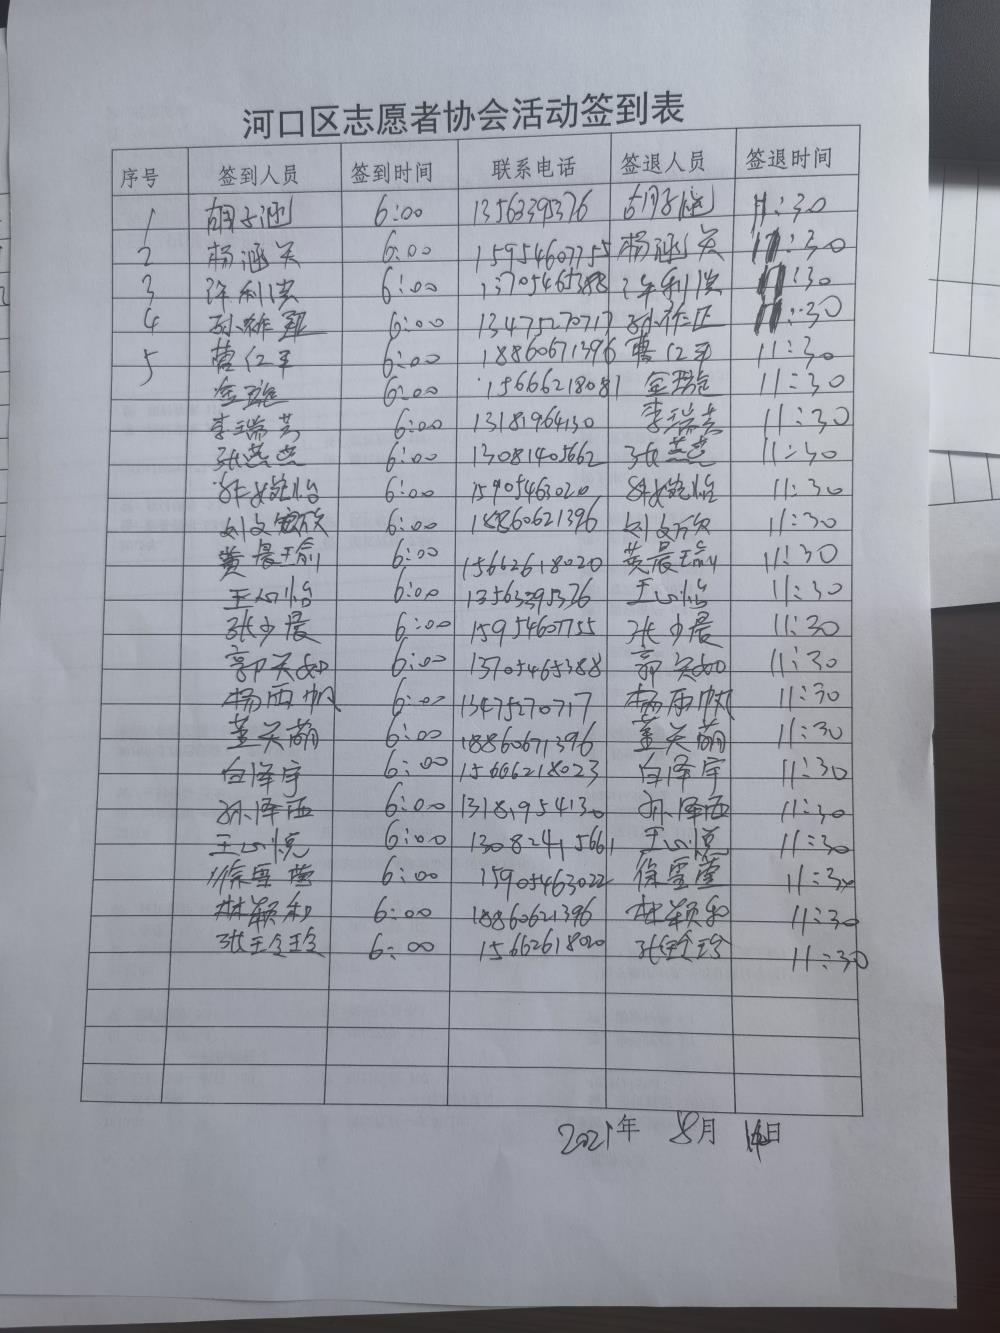 河口区志愿者协会活动签到表
序号 签到人员 签到时间 联系电话 签退人员 签退时间
1 胡子涵 6:00 13563395376 胡子涵 11:30
2 杨涵关 6:00 15954607755 杨涵关 11:30
3 许利滨 6:00 13705465388 许利滨 11:30
4 6:00 13475270717 11:30
5 曹仁平 6:00 18860671396 曹仁平 11:30
6:00 15666218081 11:30
李瑞芳 6:00 13181964130 李瑞芳 11:30
张燕燕 6:00 13081405662 张燕燕 11:30
6:00 15905463020 11:30
刘文欣 6:00 18860621396 刘文欣 11:30
黄晨瑜 6:00 15662618020 黄晨瑜 11:30
王心怡 6:00 13563395376 王心怡 11:30
张少晨 6:00 15954607755 张少晨 11:30
郭关如 6:00 13705465388 郭关如 11:30
杨雨帆 6:00 13475270717 杨雨帆 11:30
董关萌 6:00 18860671396 董关萌 11:30
白泽宇 6:00 15666218023 白泽宇 11:30
孙泽西 6:00 13181954130 孙泽西 11:30
王心悦 6:00 13082415661 王心悦 11:30
徐雪莹 6:00 15905463022 徐雪莹 11:30
林颖和 6:00 18860621396 林颖和 11:30
张玲玲 6:00 15662618020 张玲玲 11:30
2021年 8月 日